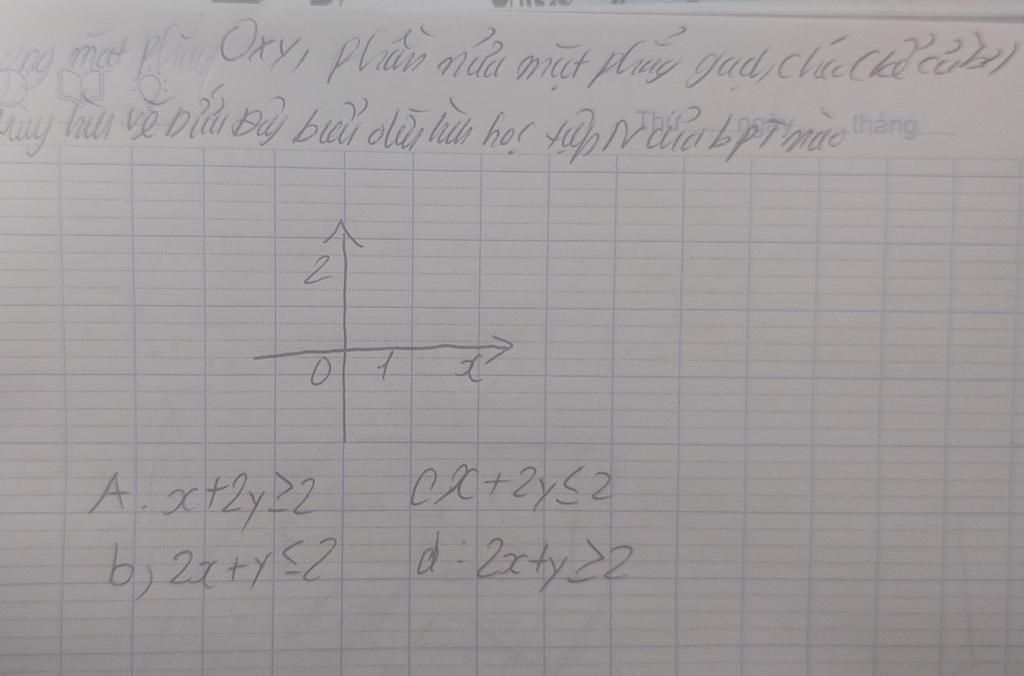 mặt phẳng Oxy, phần nửa mặt phẳng gạch chéo (kể cả bờ)
vẽ dưới đây biểu diễn hình học tập N của bpt nào
Thứ ngày tháng
2
0 1 x
A. x+2y≥2 C x+2y≤2
b, 2x+y≤2 d: 2x+y≥2